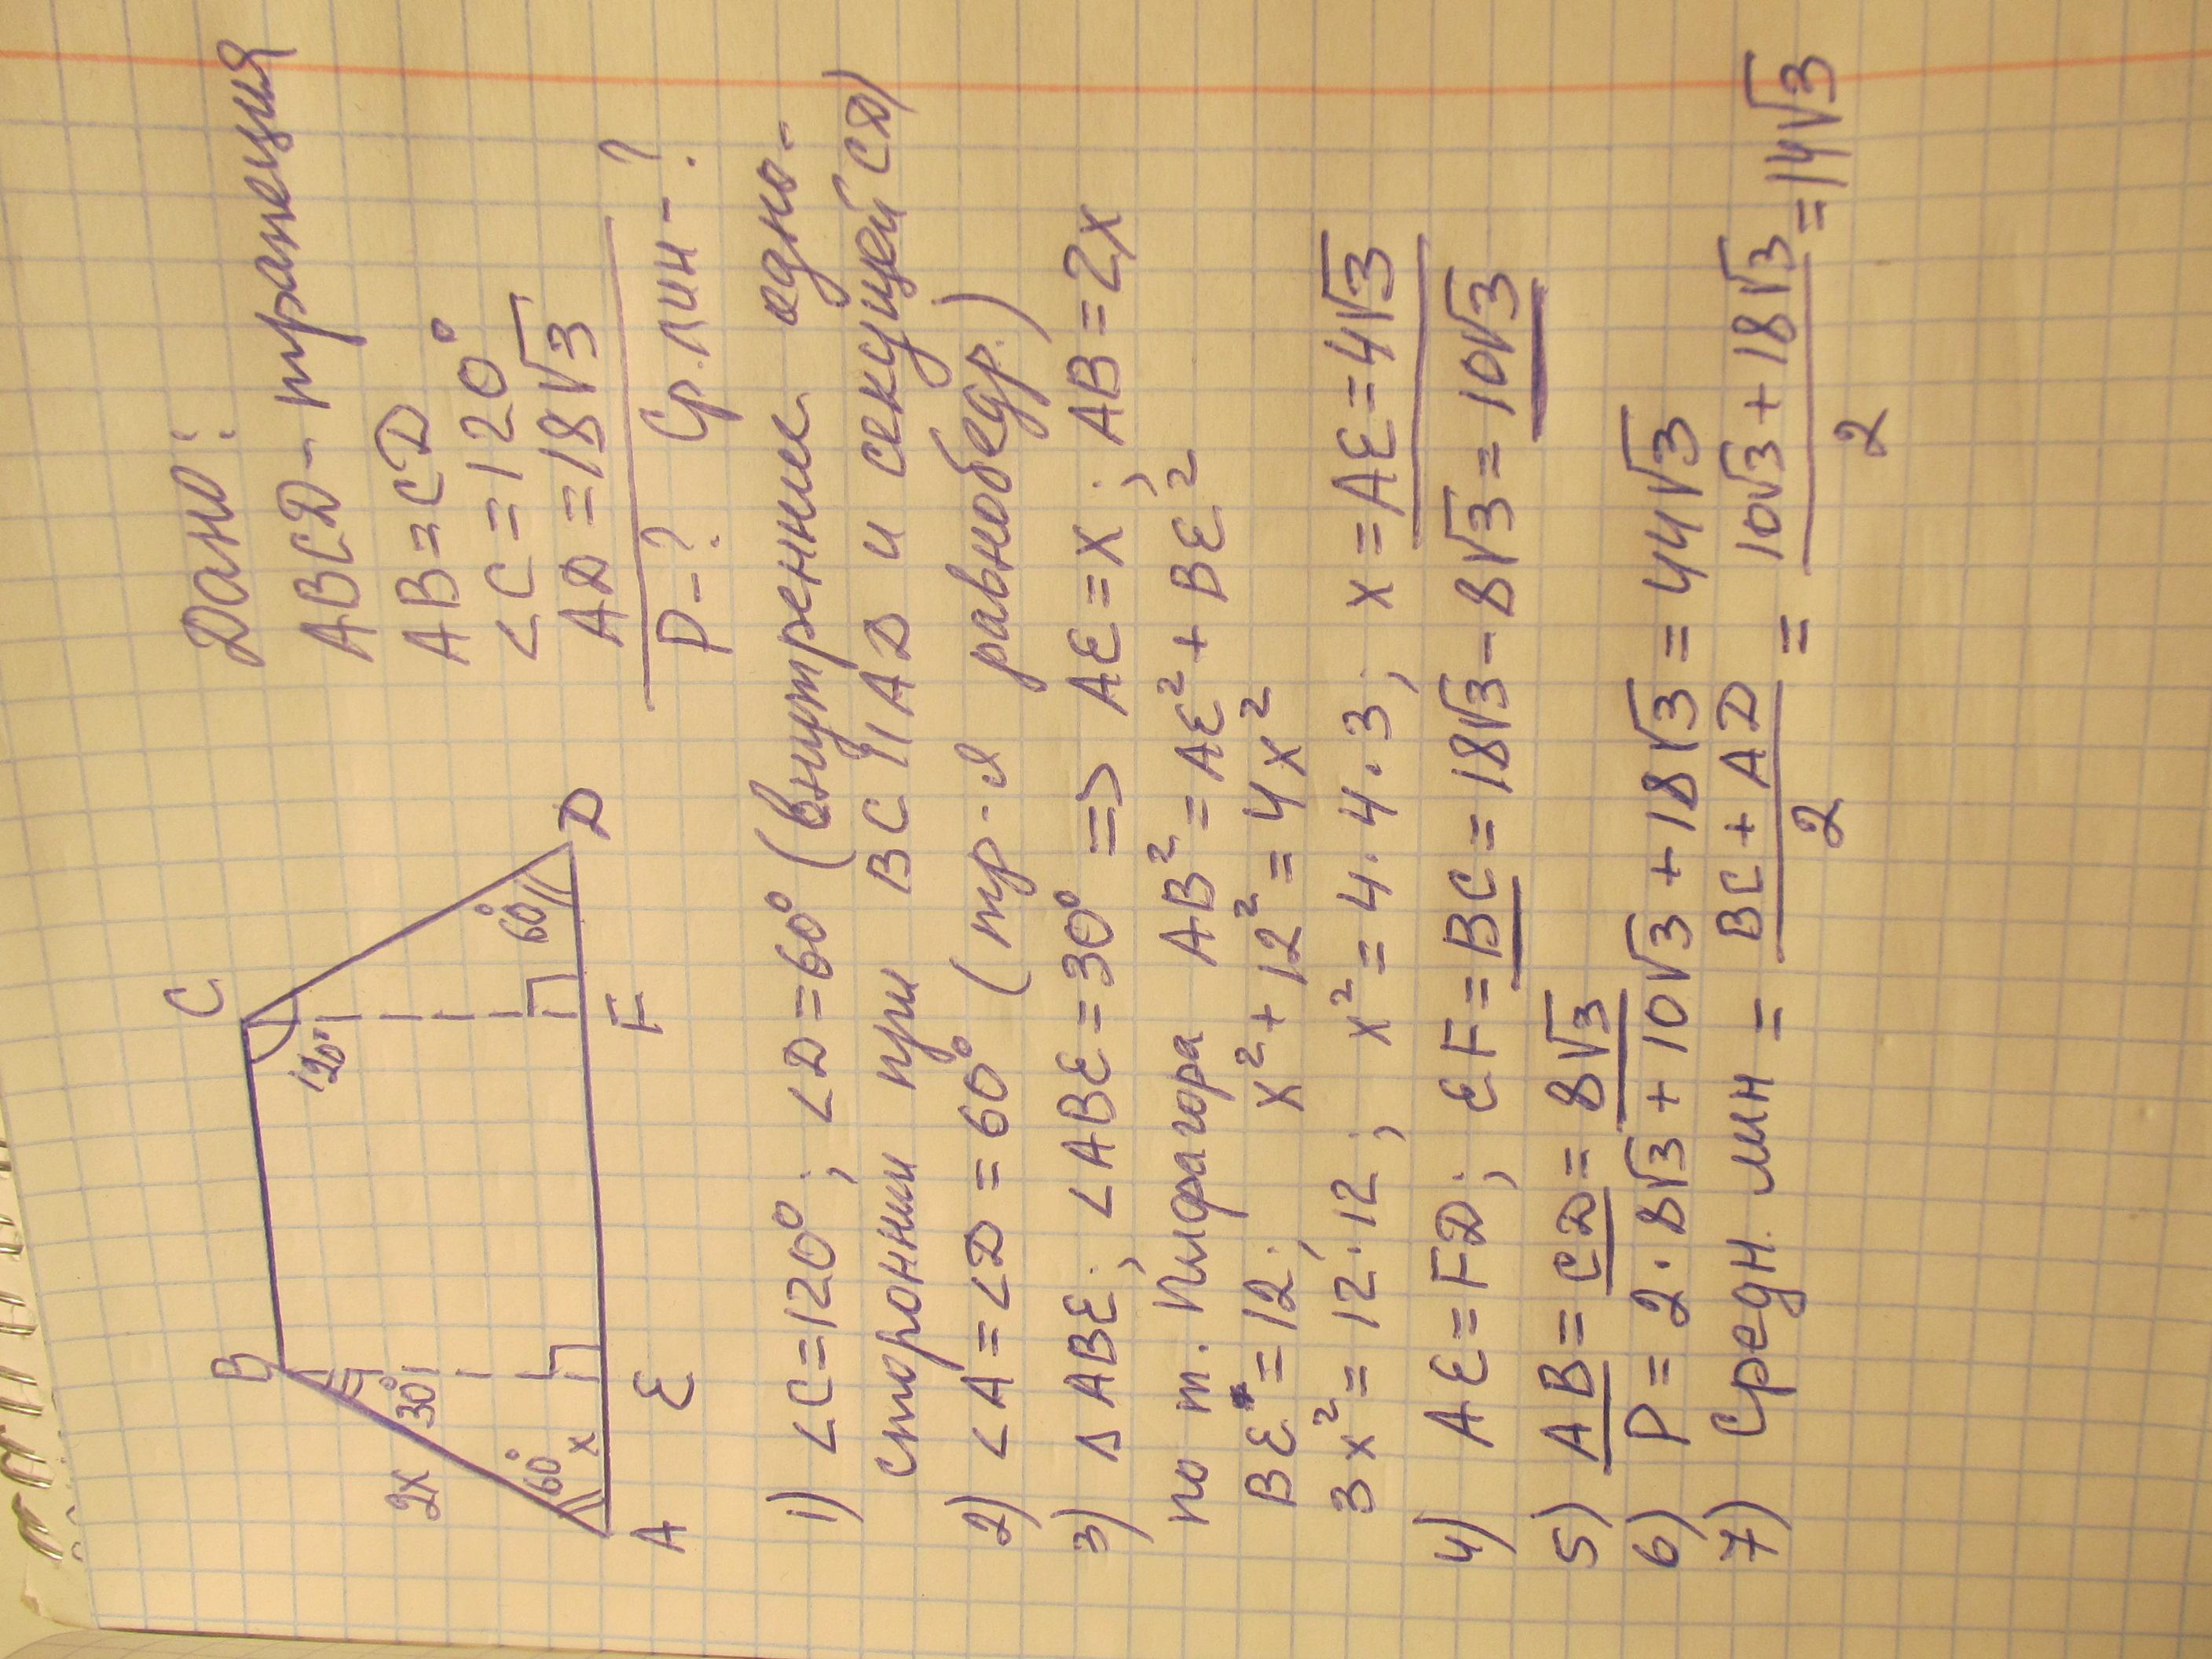 Дано:
ABCD - трапеция
AB = CD
∠C = 120°
AD = 18√3
P - ? Ср. лин - ?
B
C
120°
30°
2x
60°
x
60°
A
E
F
D
1) ∠C = 120°; ∠D = 60° (внутренние одно-
сторонни при BC || AD и секущей CD)
2) ∠A = ∠D = 60° (тр-я равнобедр.)
3) Δ ABE; ∠ABE = 30° => AE = x; AB = 2x
по т. Пифагора AB² = AE² + BE²
BE = 12; x² + 12² = 4x²
3x² = 12·12; x² = 4·4·3; x = AE = 4√3
4) AE = FD; EF = BC = 18√3 - 8√3 = 10√3
5) AB = CD = 8√3
6) P = 2·8√3 + 10√3 + 18√3 = 44√3
7) Средн. лин = (BC + AD)/2 = (10√3 + 18√3)/2 = 14√3